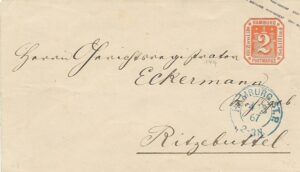 HAMBURG
2
POSTMARKE
Herrn Gerichtsregistrator
Eckermann
HAMBURG ST.P.
67
Ritzebüttel.